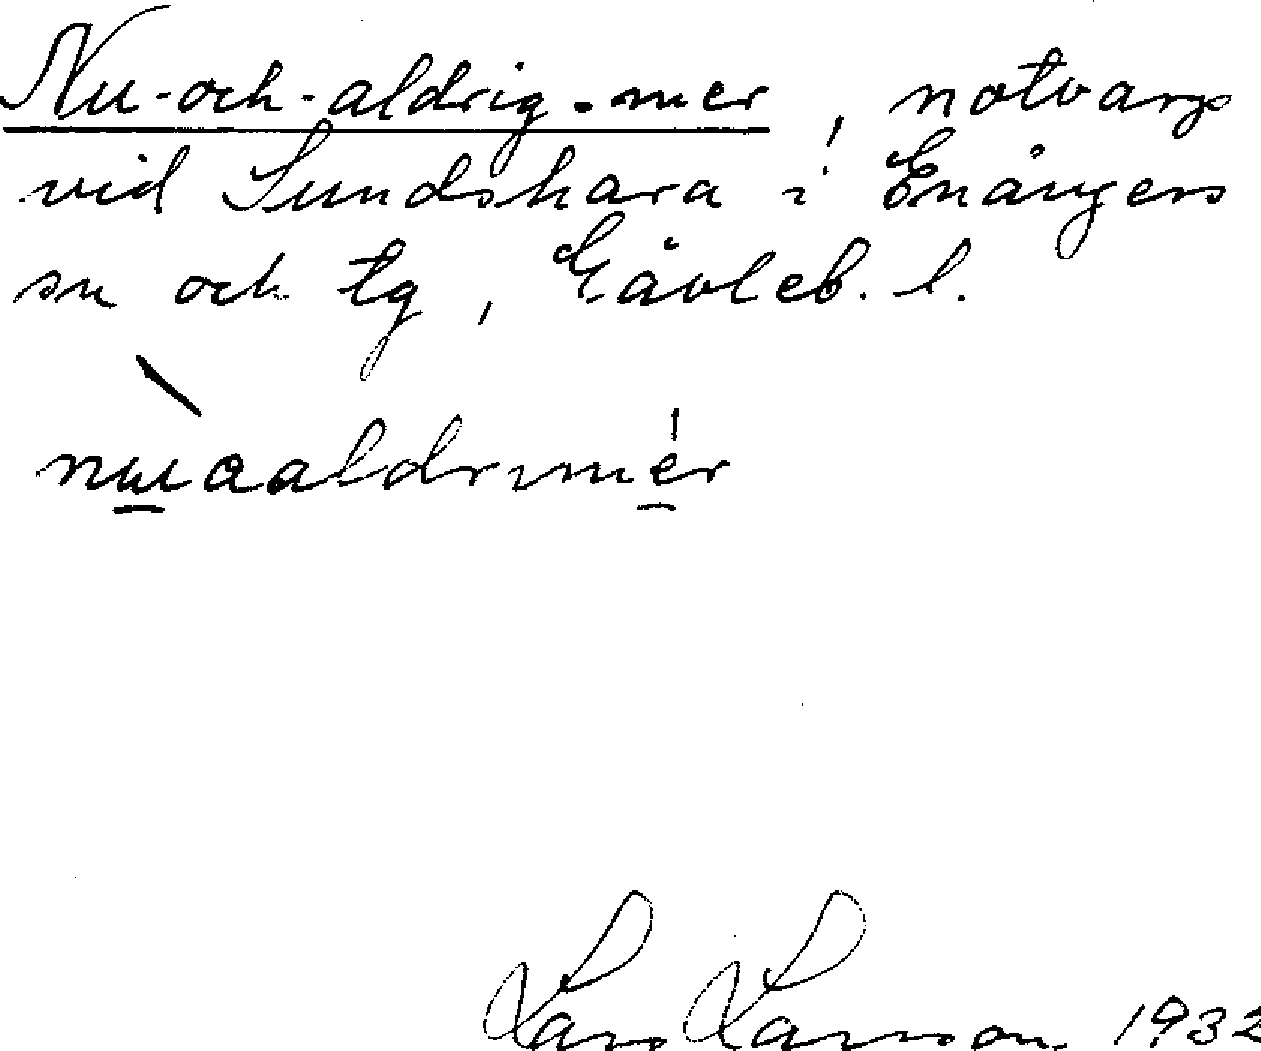 Nu-och-aldrig-mer, notvarp
vid Sundshara i Enångers
sn och tg, Gävleb. l.
Lars Larsson 1932